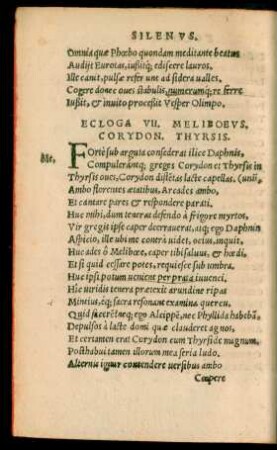 SILENVS.
Omnia quæ Phœbo quondam meditante beatus
Audijt Eurotas, iussitq; ediscere lauros.
Ille canit, pulsæ referunt ad sidera ualles.
Cogere donec oues stabulis, numerumq; referre
Iussit, & inuito processit Vesper Olimpo.
ECLOGA VII. MELIBOEVS.
CORYDON. THYRSIS.
Me. Fortè sub arguta consederat ilice Daphnis,
Compulerantq; greges Corydon et Thyrsis in
Thyrsis oues, Corydon distētas lacte capellas. (unū,
Ambo florentes ætatibus, Arcades ambo,
Et cantare pares & respondere parati.
Huc mihi, dum teneras defendo à frigore myrtos,
Vir gregis ipse caper deerrauerat, atq; ego Daphnin
Aspicio, ille ubi me contrà uidet, ocius, inquit,
Huc ades ô Melibœe, caper tibi saluus, & hœdi,
Et si quid cessare potes, requiesce sub umbra.
Huc ipsi potum uenient per prata iuuenci.
Hîc uiridis tenera prætexit arundine ripas
Mintius, éq; sacra resonant examina quercu.
Quid facerē? neq; ego Alcippē, nec Phyllida habebā,
Depulsos à lacte domi quæ clauderet agnos,
Et certamen erat Corydon cum Thyrside magnum.
Posthabui tamen illorum mea seria ludo.
Alternis igitur contendere uersibus ambo
Cœpere